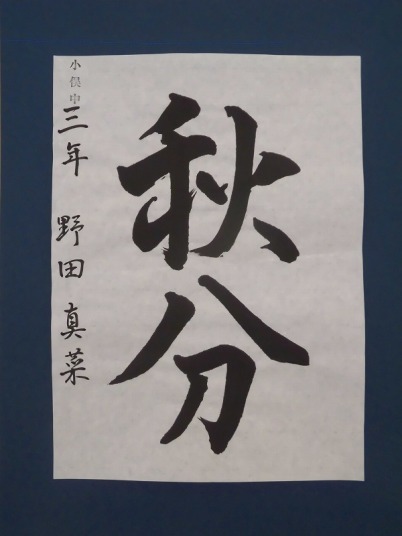 秋分
小俣中
三年 野田真菜